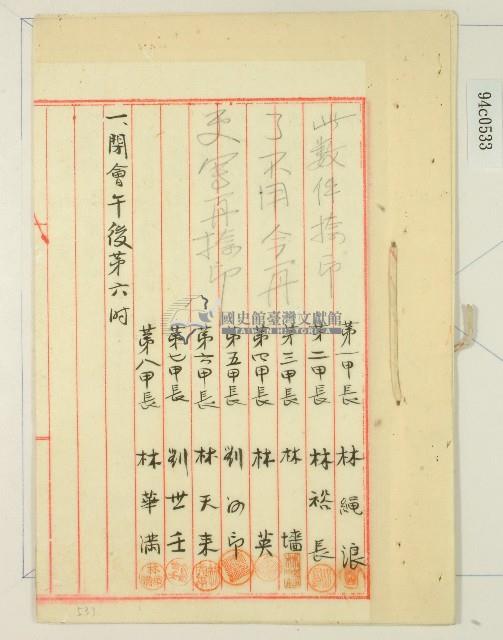 94c0533
此數件捺印
了不用今再
更寫再捺印
第一甲長 林繩浪
第二甲長 林裕長
第三甲長 林墻
第四甲長 林英
第五甲長 劉如印
第六甲長 林天来
第七甲長 劉世壬
第八甲長 林華滿
一、閉會午後第六时
國史館臺灣文獻館
TAIWAN HISTORICA
531